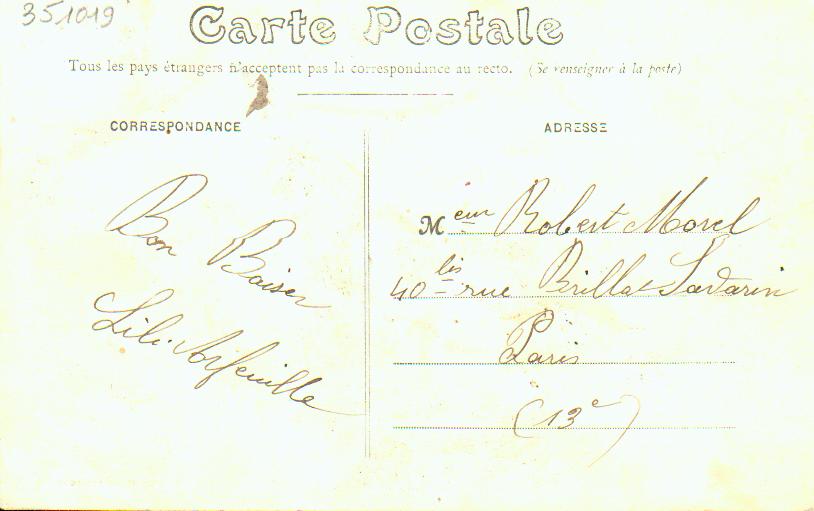 351019
Carte Postale
Tous les pays étrangers n'acceptent pas la correspondance au recto. (Se renseigner à la poste)
CORRESPONDANCE
ADRESSE
Bon Baiser
Lili Arfeuille
Meur Robert Morel
40 bis rue Brillat Savarin
Paris
(13e)